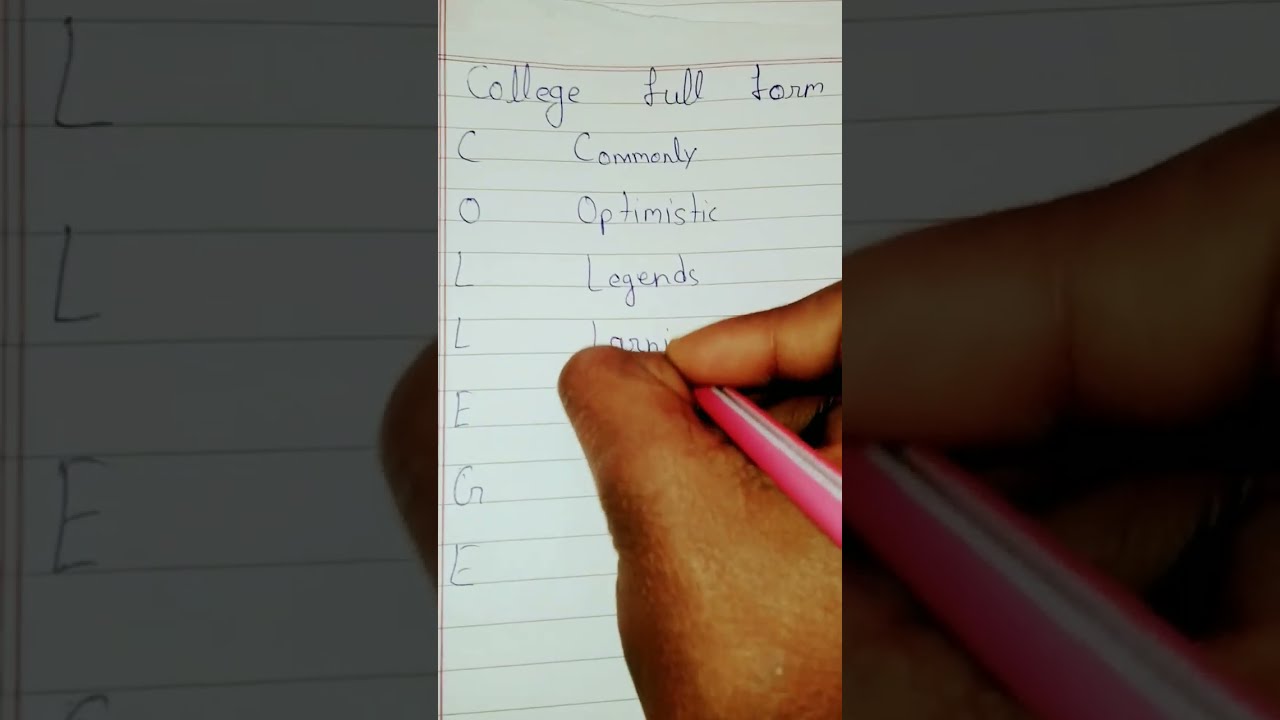 College full form
C Commonly
O Optimistic
L Legends
L
E
G
E